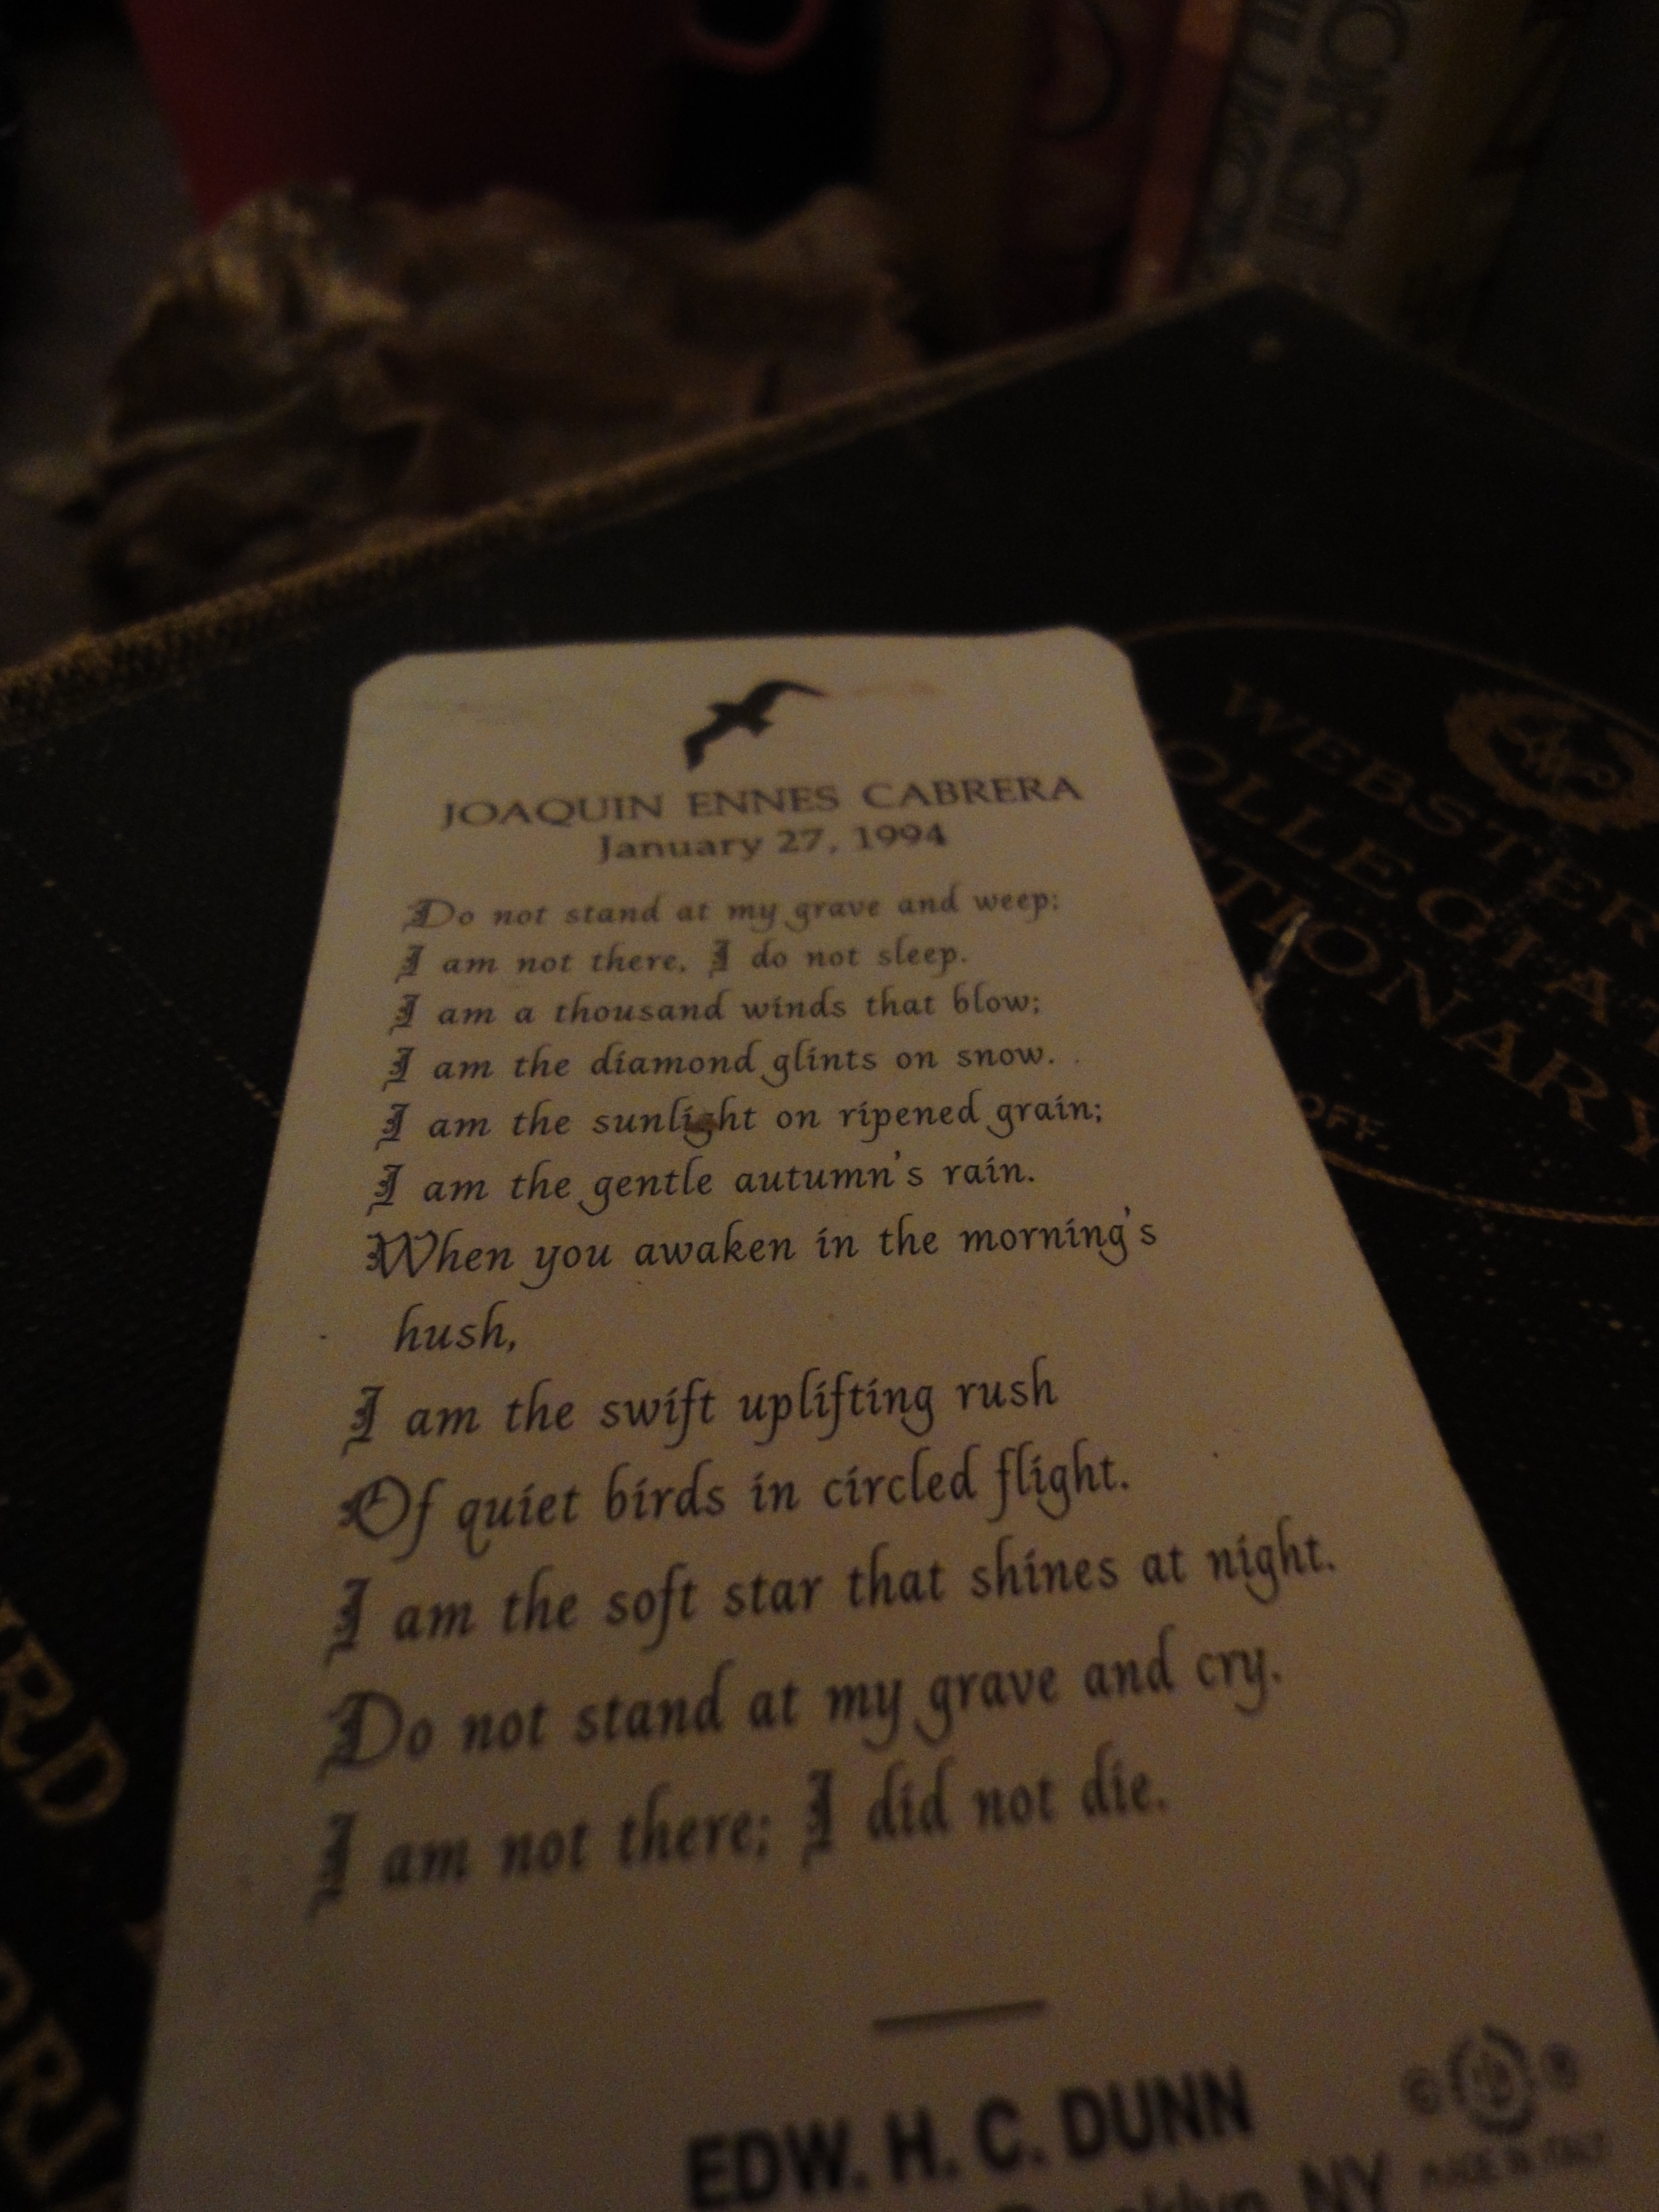 JOAQUIN ENNES CABRERA
January 27, 1994
Do not stand at my grave and weep;
I am not there, I do not sleep.
I am a thousand winds that blow;
I am the diamond glints on snow.
I am the sunlight on ripened grain;
I am the gentle autumn's rain.
When you awaken in the morning's
hush,
I am the swift uplifting rush
Of quiet birds in circled flight.
I am the soft star that shines at night.
Do not stand at my grave and cry.
I am not there; I did not die.
EDW. H. C. DUNN
Brooklyn, NY
MADE IN ITALY
WEBSTER
OLLEGIAT
TIONARY
OFF.